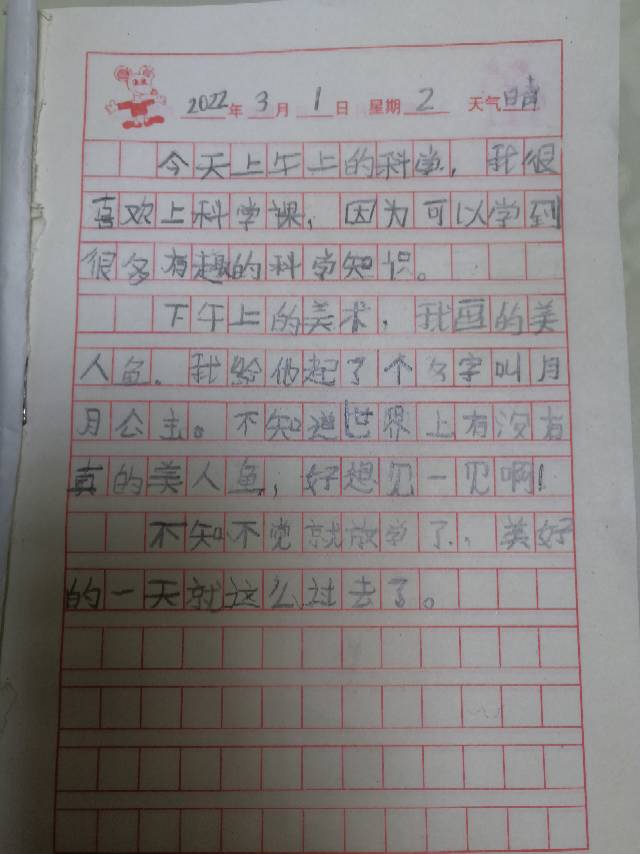 2022年3月1日 星期2 天气晴
今天上午上的科学，我很
喜欢上科学课，因为可以学到
很多有趣的科学知识。
下午上的美术，我画的美
人鱼．我给他起了个名字叫月
月公主。不知道世界上有没有
真的美人鱼，好想见一见啊！
不知不觉就放学了，美好
的一天就这么过去了。